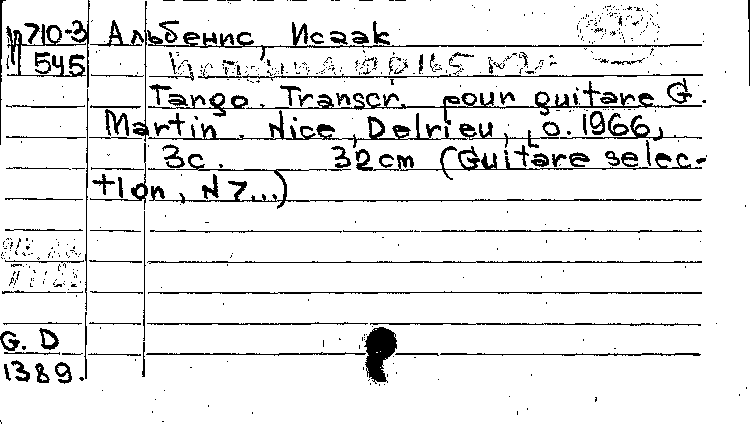 П710-3 Альбенис, Исаак
545
Tango. Transcr. pour guitare G.
Martin. Nice, Delrieu, o. 1966,
3c. 32 cm (Guitare selec-
tion, N 7...)
G. D
1389.